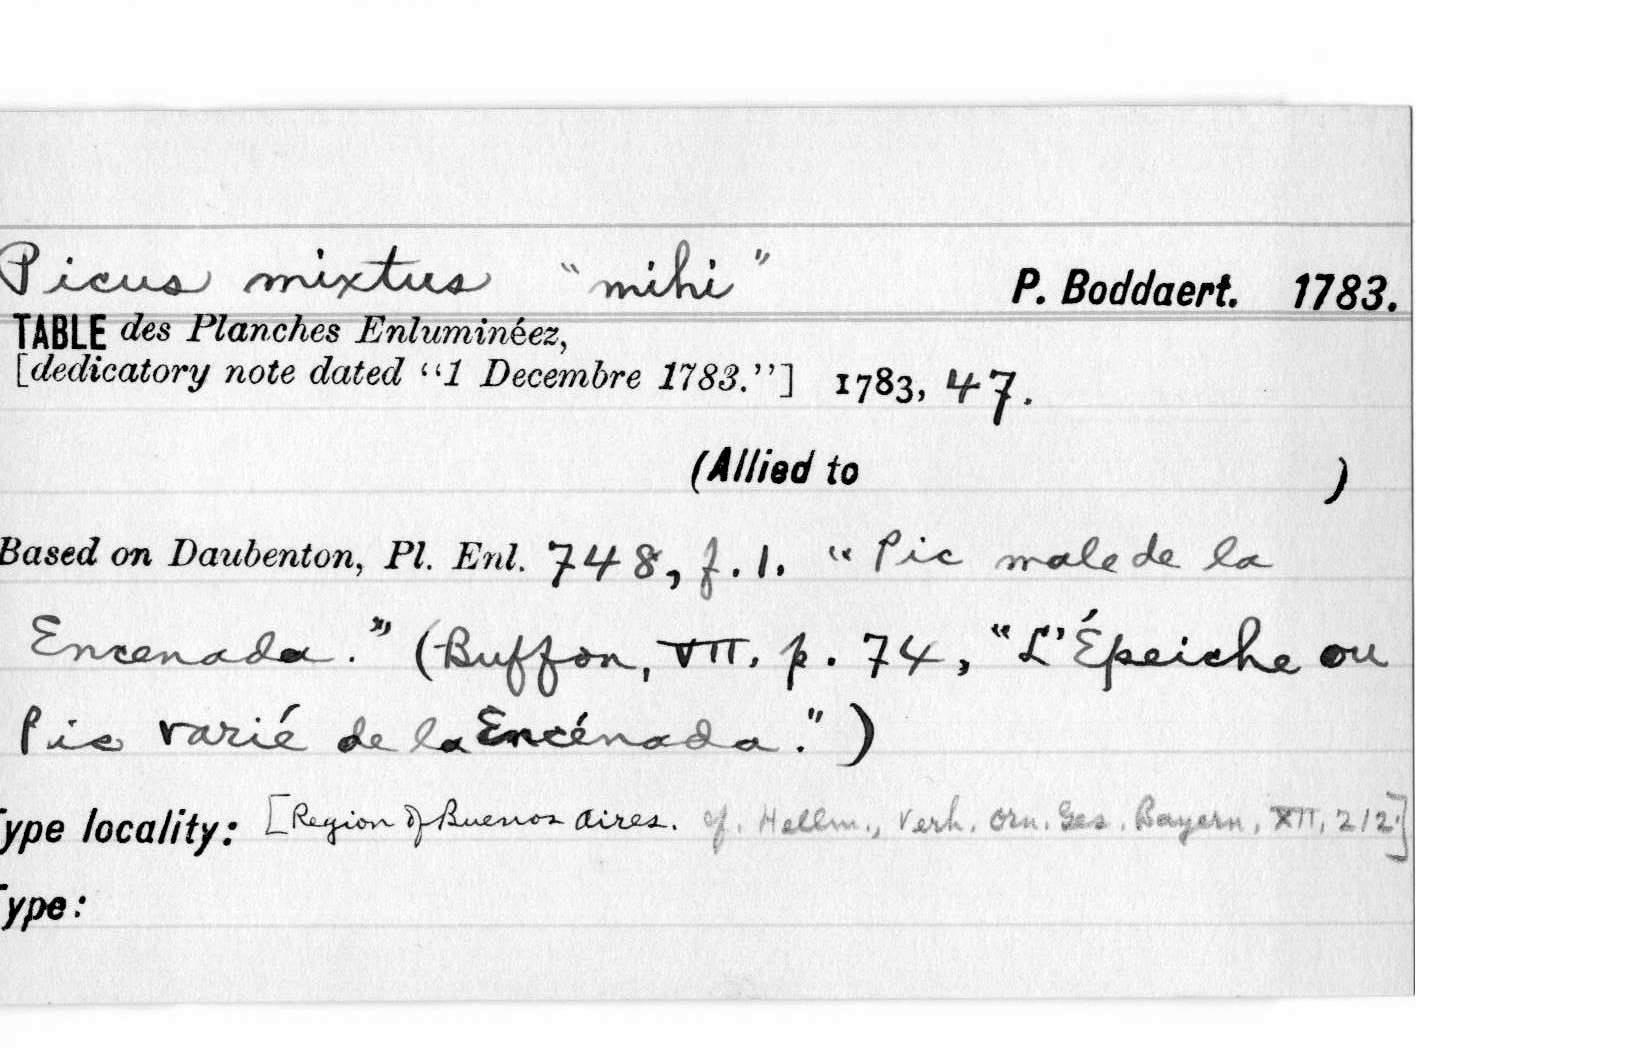 Picus mixtus "mihi" P. Boddaert. 1783.
TABLE des Planches Enluminéez,
[dedicatory note dated "1 Decembre 1783."] 1783, 47.
(Allied to )
Based on Daubenton, Pl. Enl. 748, f. 1. "Pic male de la
Encenada." (Buffon, VII. p. 74, "L'Épeiche ou
Pic varié de la Encénada.")
Type locality: [Region of Buenos Aires. cf. Hellm., Verh. Orn. Ges. Bayern, XII, 212.]
Type: